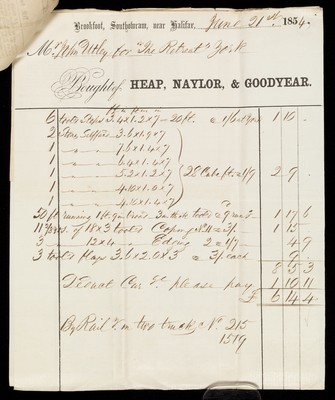 Brookfoot, Southowram, near Halifax, June 21st 1854.
Mr John Utley for "The Retreat" York
Bought of HEAP, NAYLOR, & GOODYEAR.
6 tooled Steps 3.4x1.2x7 - 20ft. @ 1/6 1 10 .
2 Stone 3.6x1.9x7
1 " " 7.6x1.4x7
1 " " 6.4x1.4x7
1 " " 5.2x1.2x7 28 Cube ft @ 1/9 2 9 .
1 " " 4.10x1.0x7
1 " " 4.10x1.4x7
50 ft running 3 in thick tooled 1 17 6
of 18x3 tooled Coping 1 15
3 " 12x4 " Edging 2 @ 1/7 4 9
3 tooled Flags 3.6x2.0x3 @ 3/ each . 9 .
8 5 3
Deduct Car &c please pay 1 10 11
£ 6 14 4
By Rail two trucks No 215
1519